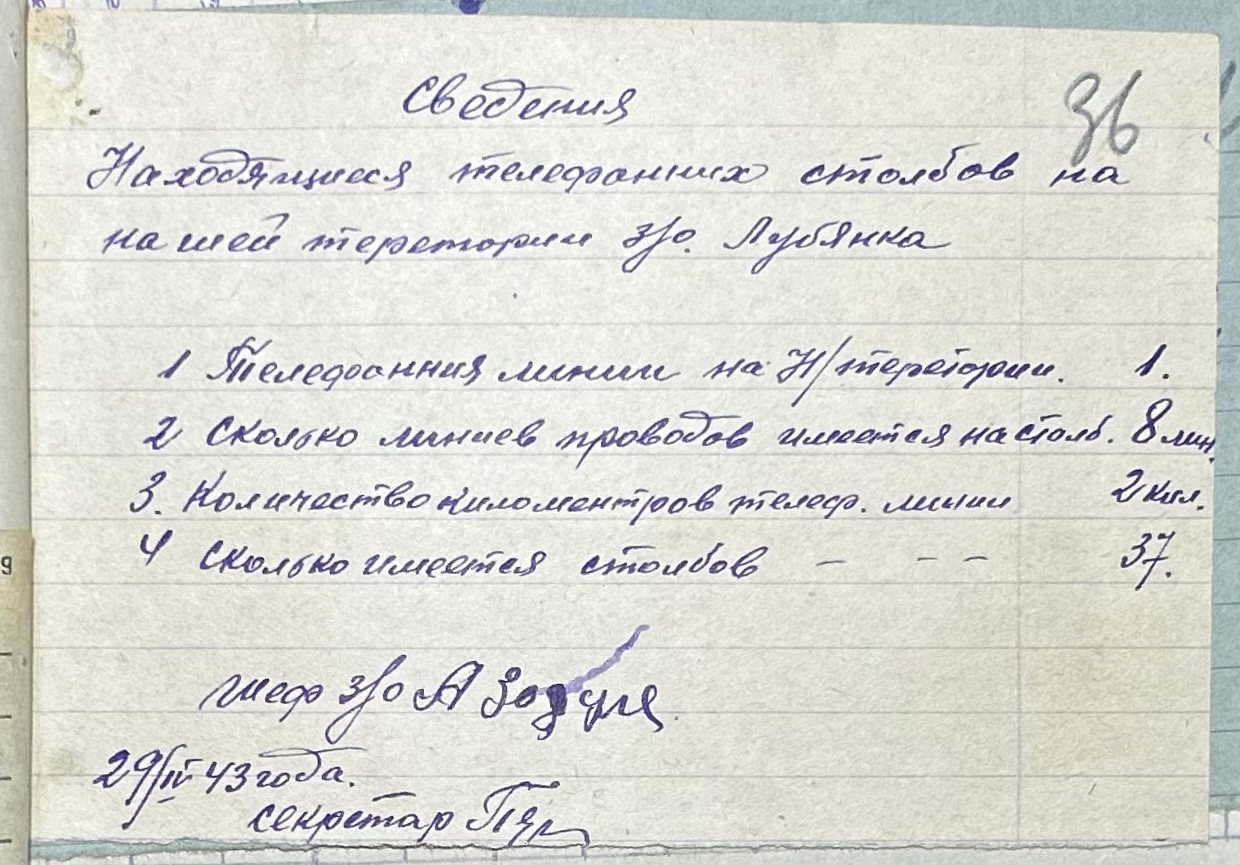 Сведения
36
Находящиеся телефанних столбов на
на шей теретории з/о. Лубянка
1 Телефанния линии на Н/теретории. 1.
2 Сколько линиев проводов имеется на столб. 8 лин.
3. Количество киломентров телеф. линии 2 кил.
4 Сколько имеется столбов — — — 37.
шеф з/о А
29/IV 43 года.
секретар
9